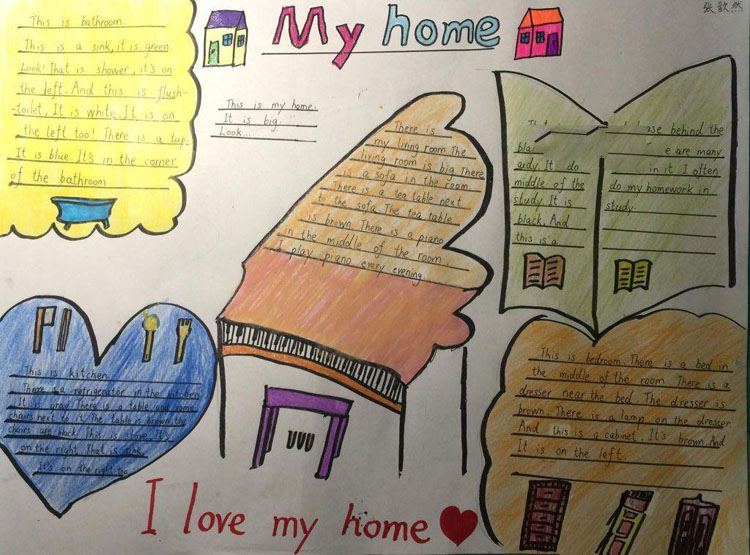 张歆然
My home
This is bathroom.
This is a sink, it is green.
Look! That is shower, it's on
the left. And this is flush-
-toilet, It is white It is on
the left too! There is a tup
It is blue. It's in the corner
of the bathroom
This is my home.
It is big.
Look...
There is
my living room The
living room is big There
is a sofa in the room
There is a tea table next
to the sofa The tea table
is brown There is a piano
in the middle of the room
I play piano every evening.
behind the
are many
in it I often
do my homework in
study
It do
middle of the
study. It is
black. And
this is a
This is kitchen
There is a refrigerator in the kitchen
It is gray There is a table and some
chairs next to it. The table is brown. the
chairs are black. This is stove. It's
on the right. That is sink
It's on the right too
This is bedroom. There is a bed in
the middle of the room There is a
dresser near the bed. The dresser is
brown. There is a lamp on the dresser
And this is a cabinet. It's brown. And
It is on the left
I love my home